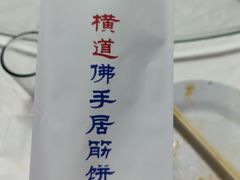 横道佛手居筋饼